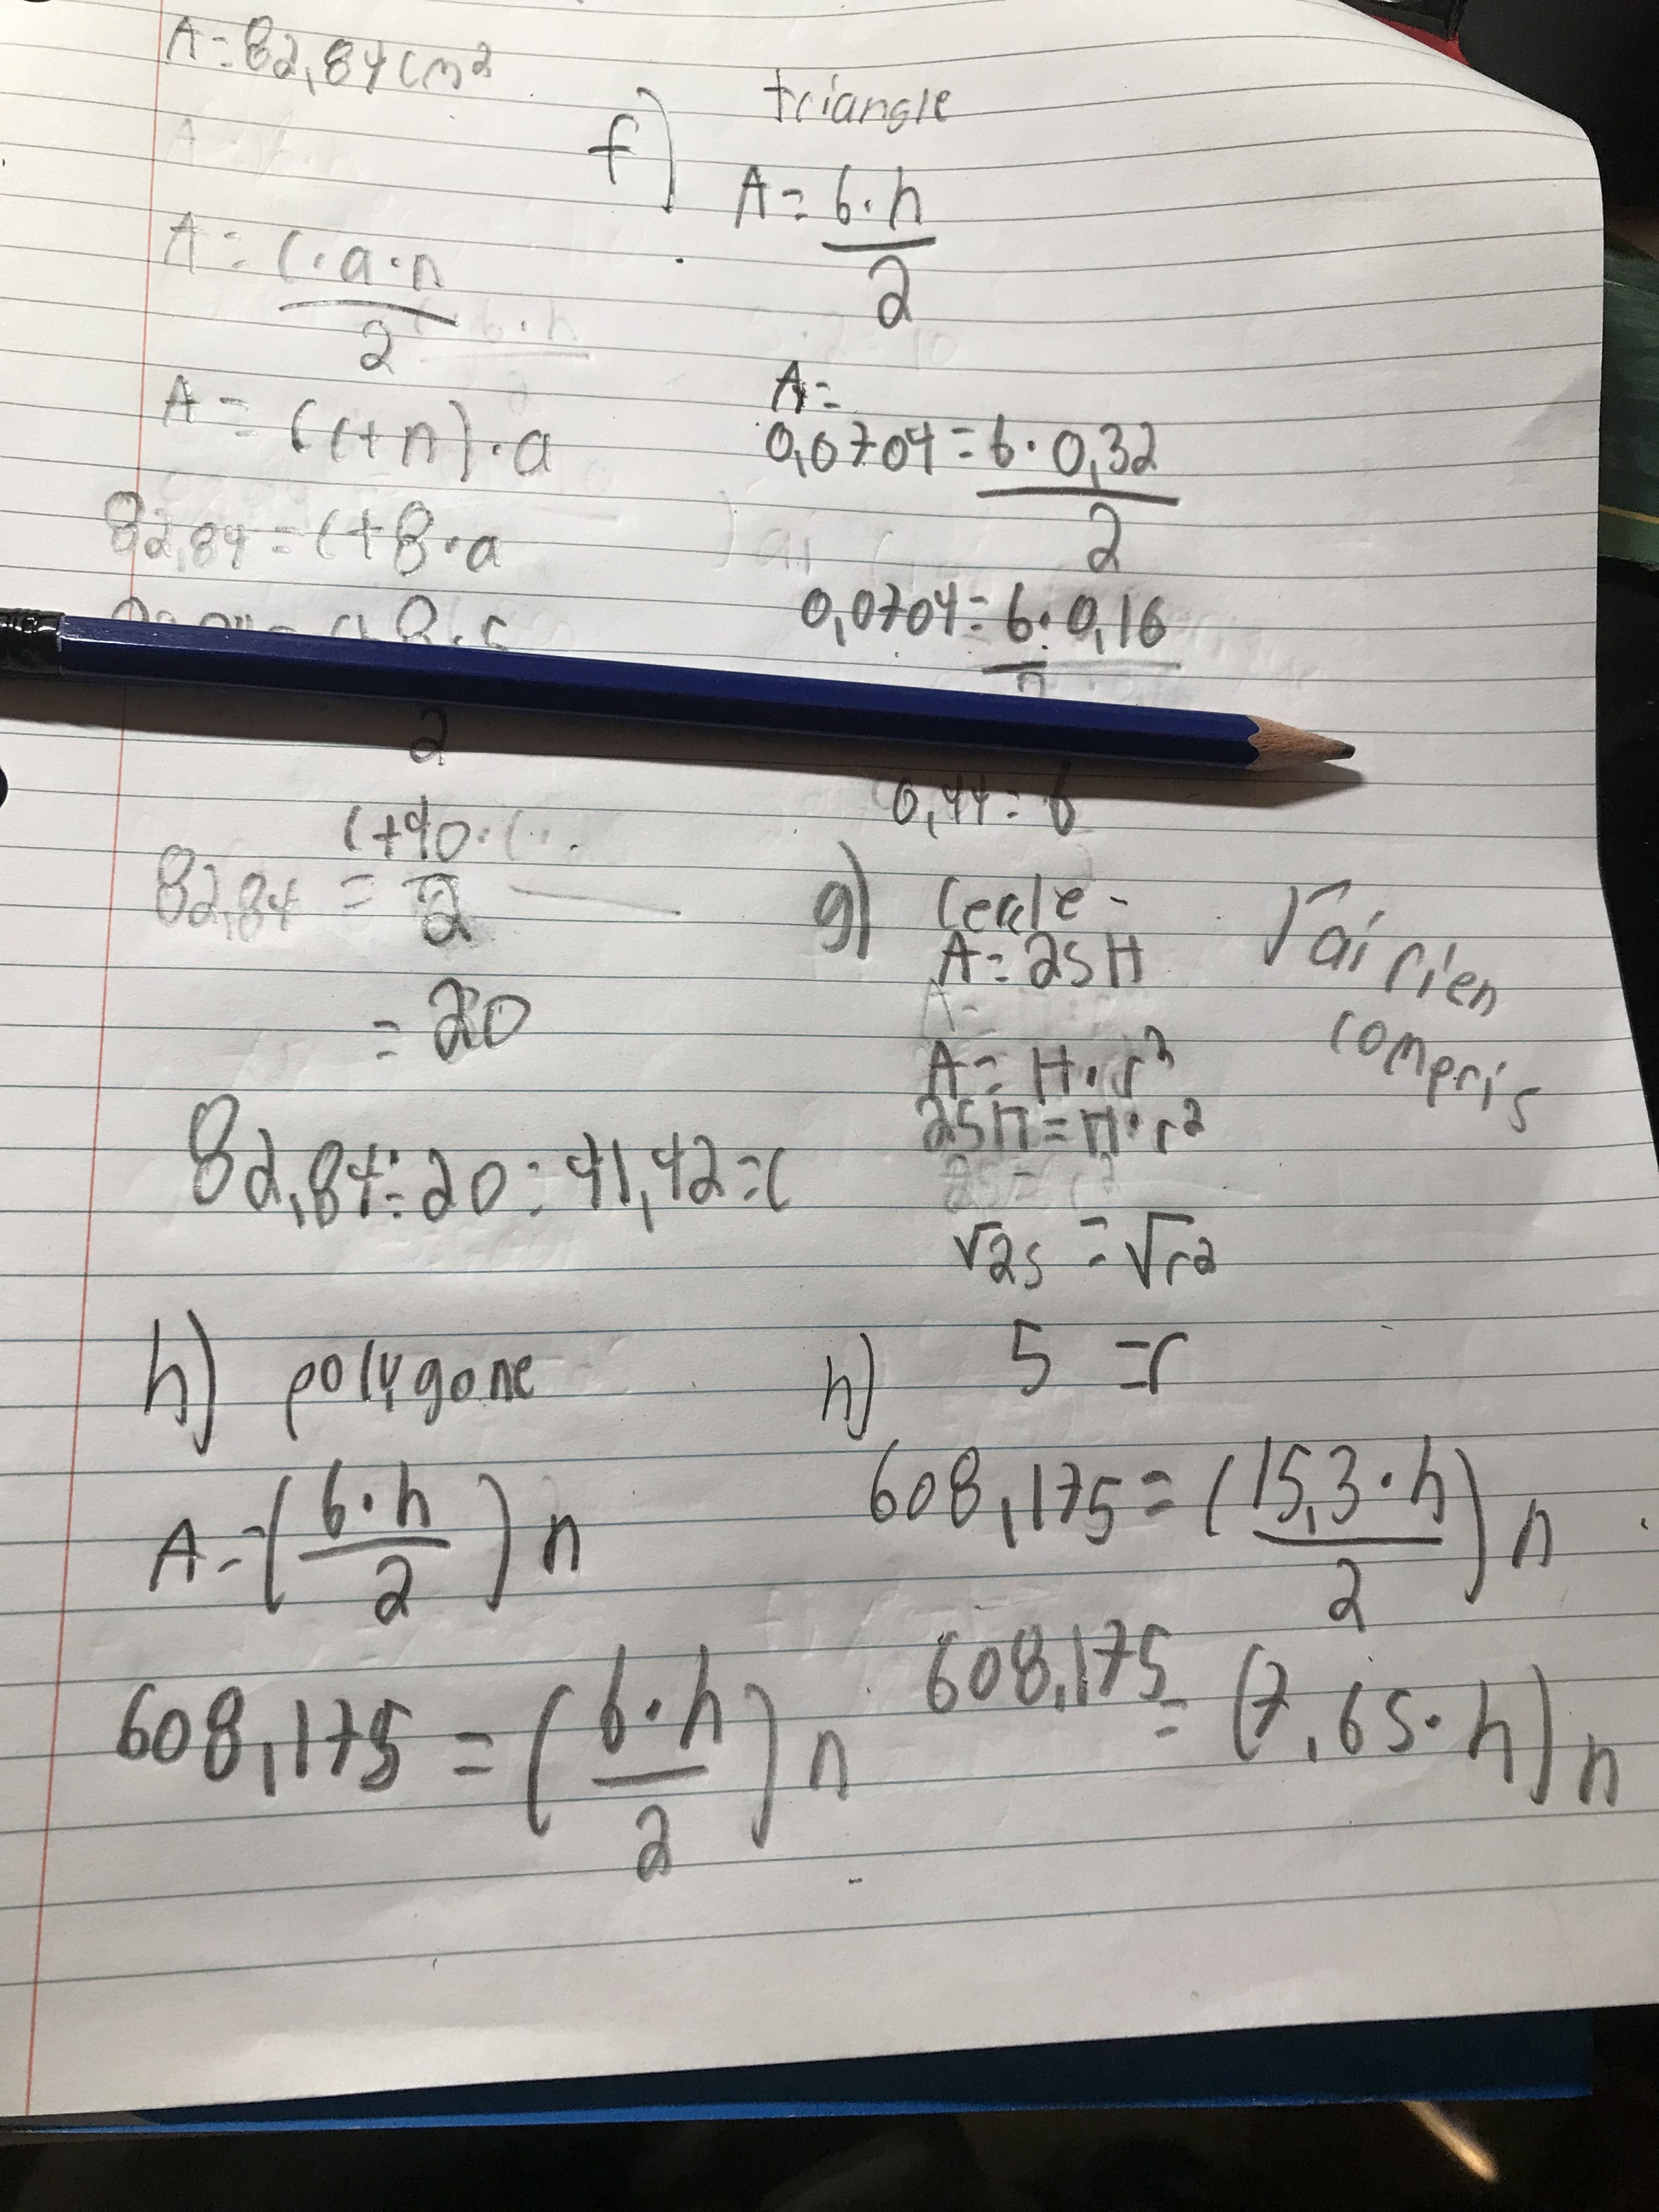 A = 82,84 cm²
A = c·a·n
2
A = (c+n)·a
82,84 = c+8·a
2
c+40·
82,84 = 2
= 20
82,84÷20=41,42=c
f) triangle
A = b·h
2
A=
0,0704 = b·0,32
2
0,0704 = b·0,16
0,44 = b
g) Cercle -
A = 25π
A = π·r²
25π = π·r²
√25 = √r²
5 = r
J'ai rien
compris
h) polygone
A=(b·h/2)n
608,175 = (b·h/2)n
h)
608,175 = (15,3·h/2)n
608,175 = (7,65·h)n